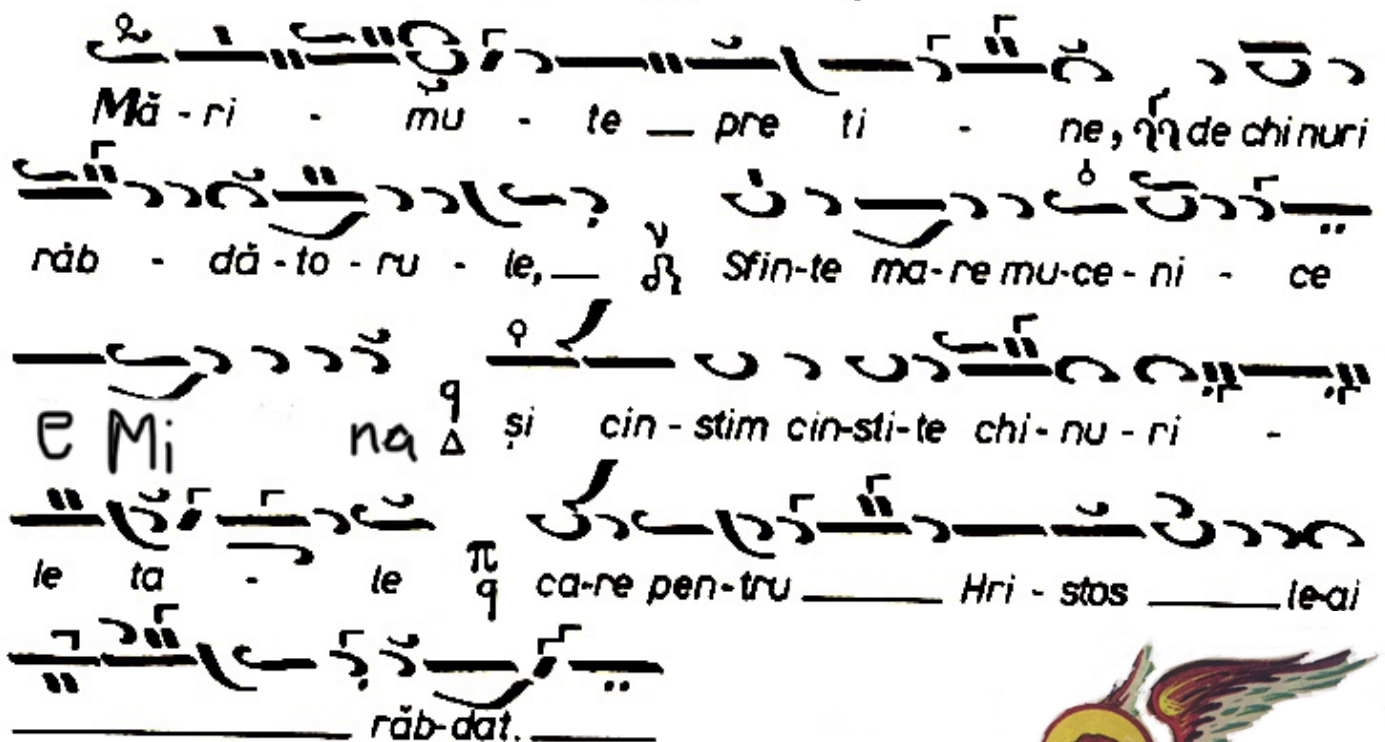 Mă - ri - mu - te _ pre ti - ne, de chinuri
răb - dă - to - ru - le, _ Sfin-te ma-re mu-ce-ni - ce
e Mi na și cin - stim cin-sti-te chi-nu-ri -
le ta - le ca-re pen-tru ____ Hri - stos ____ le-ai
____ răb-dat. ____